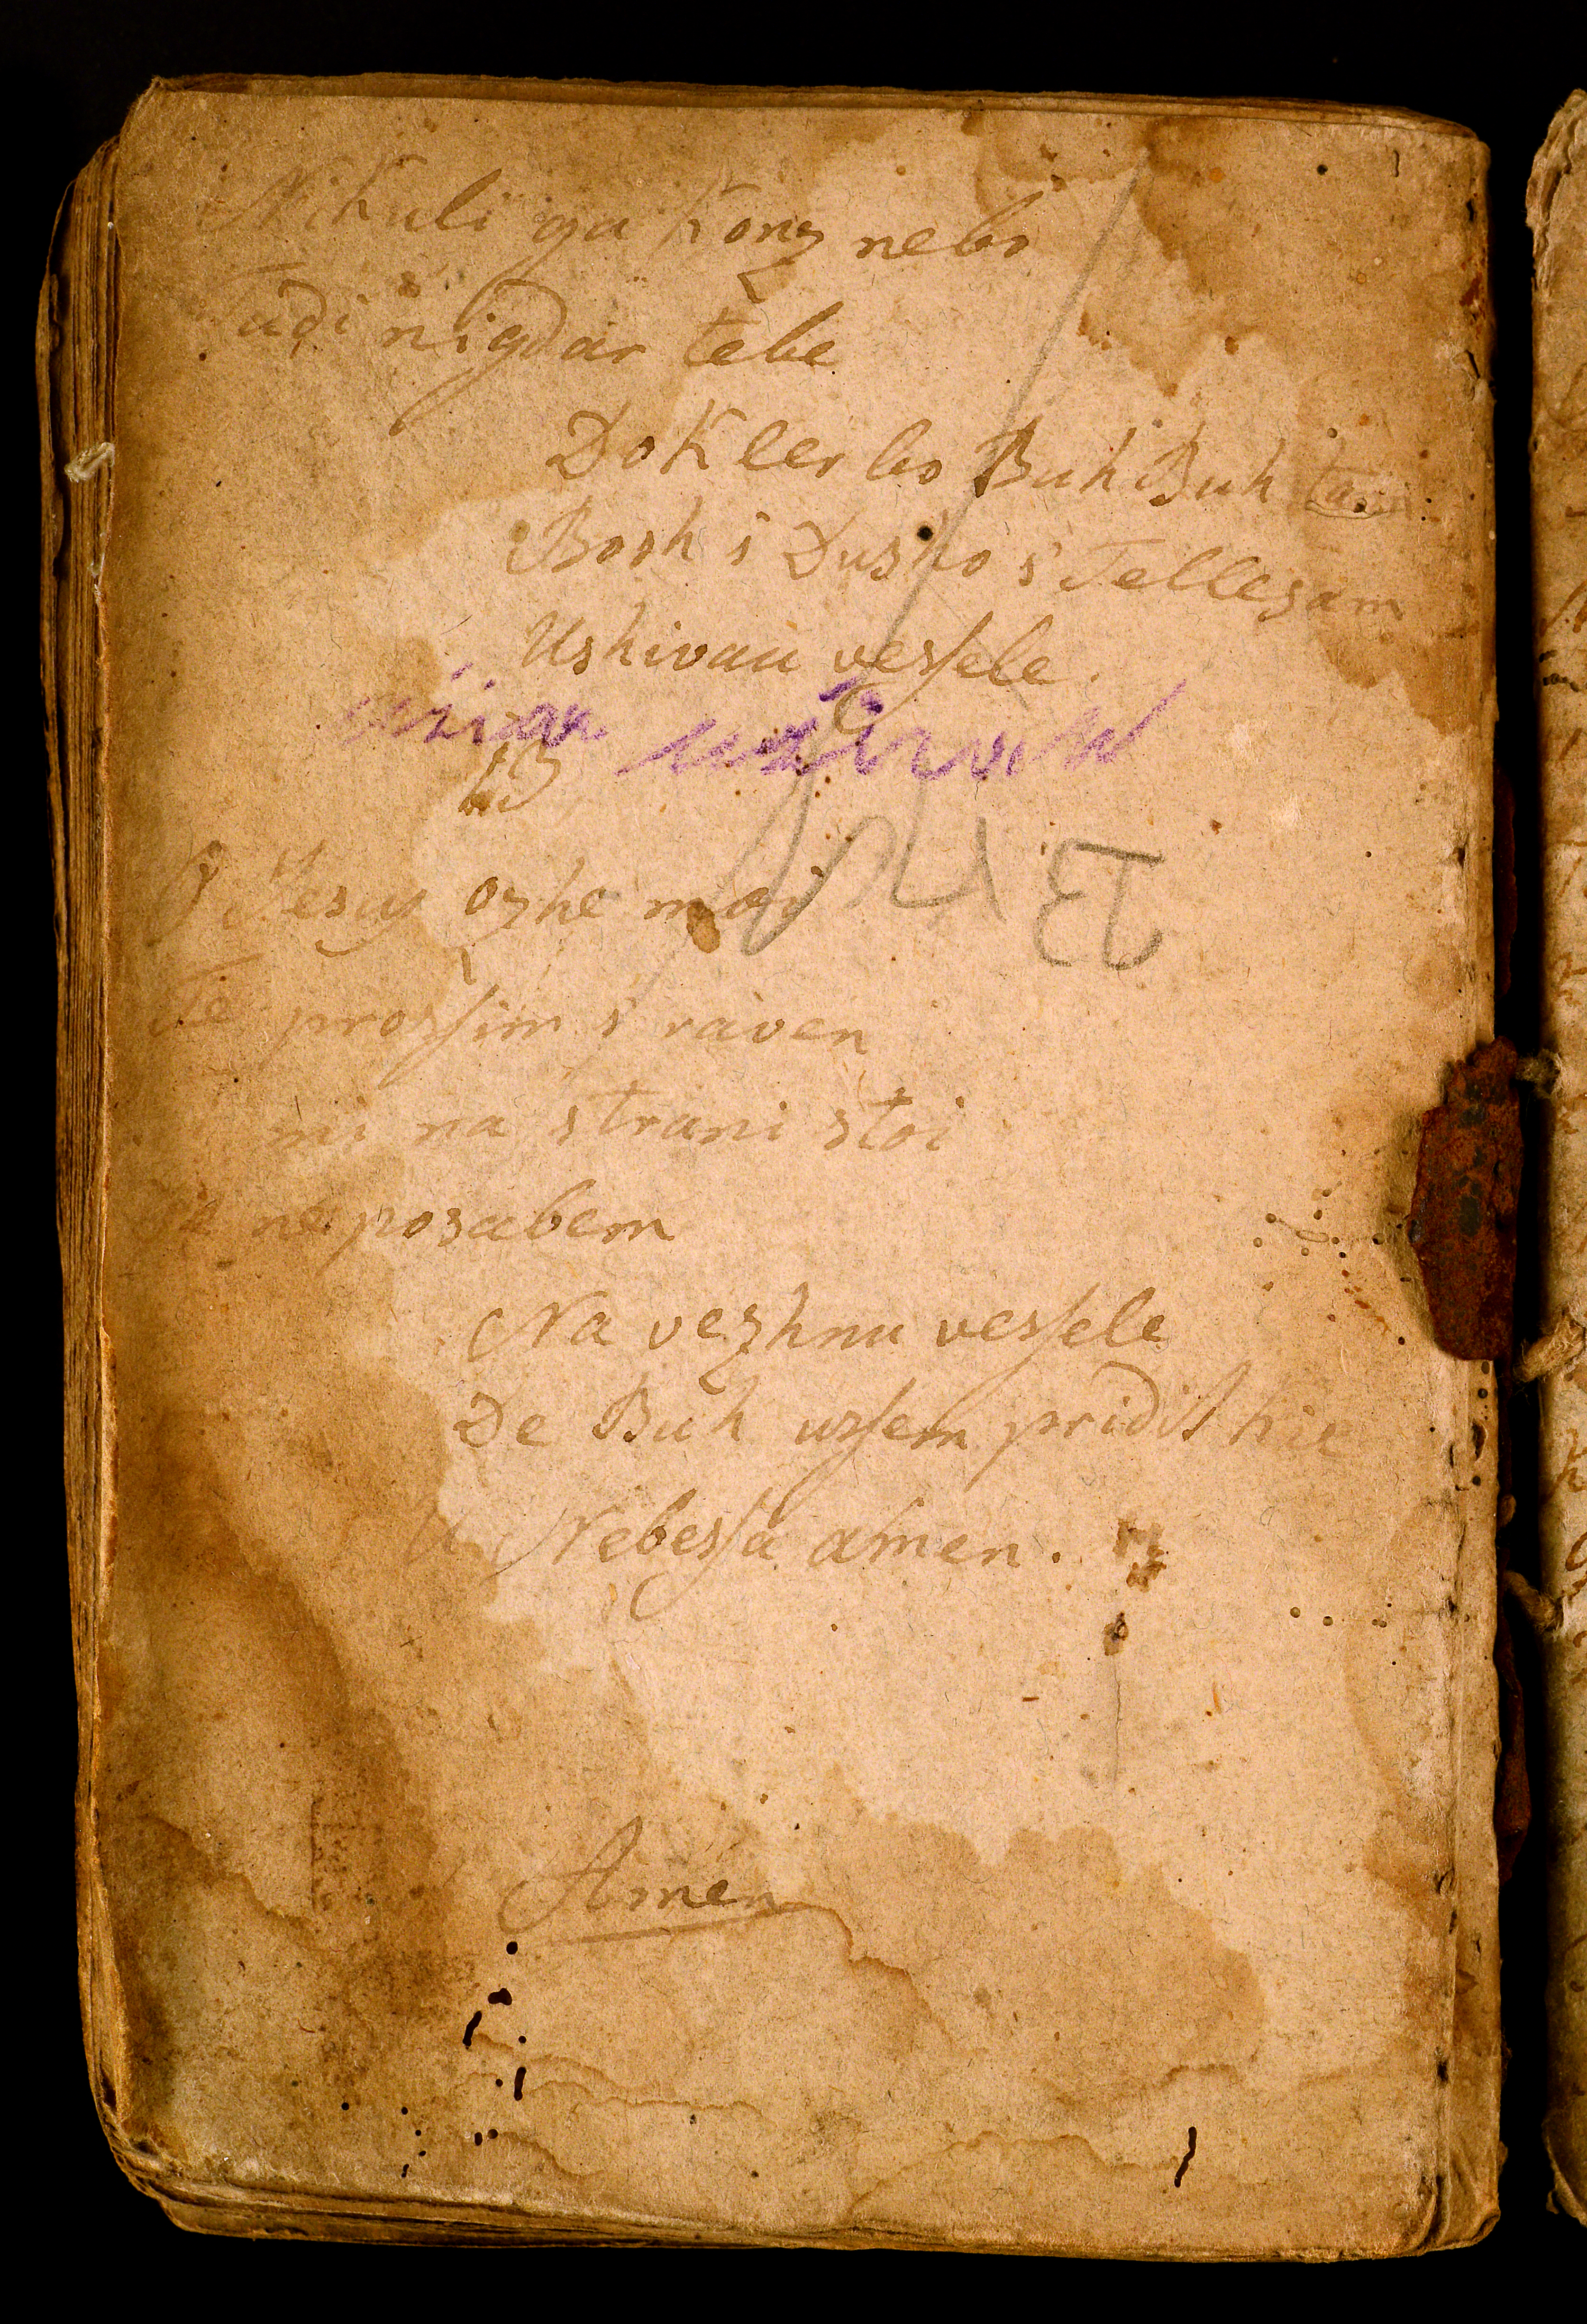 Nikuli ga Konz nebo
Tudi nigdar tebe
Dokler bo Buh Buh ta
Bosh s Dusho s Tellesam
Ushivau vessele.
13
O Jesus ozhe moi
Te prossim s raven
mi na strani stoi
ne posabem
Na vezhnu vessele
De Buh ussem pridit hie
U Nebessa amen.
Amen